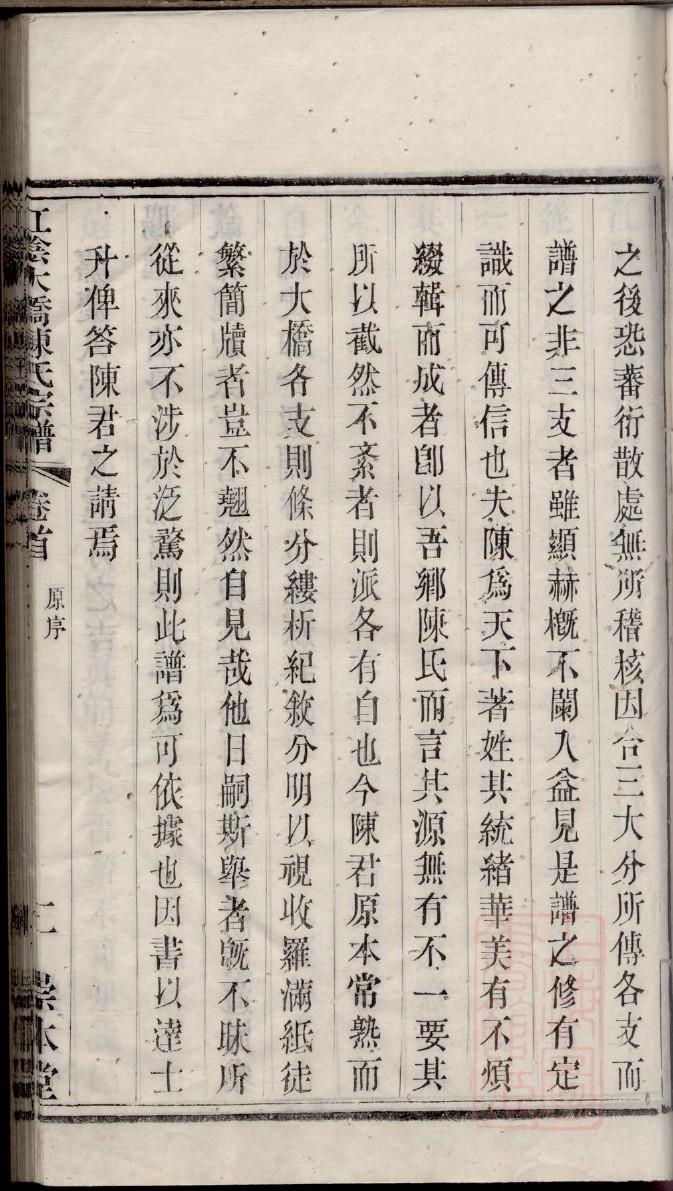 之後恐蕃衍散處無所稽核因合三大分所傳各支而
譜之非三支者雖顯赫槪不闌入益見是譜之修有定
識而可傳信也夫陳爲天下著姓其統緒華美有不煩
綴輯而成者卽以吾鄉陳氏而言其源無有不一要其
所以截然不紊者則派各有自也今陳君原本常熟而
於大橋各支則條分縷析紀敘分明以視收羅滿紙徒
繁簡牘者豈不翹然自見哉他日嗣斯舉者旣不昧所
從來亦不涉於泛騖則此譜爲可依據也因書以達士
升俾答陳君之請焉
江陰大橋陳氏宗譜 卷首 原序 二 崇本堂